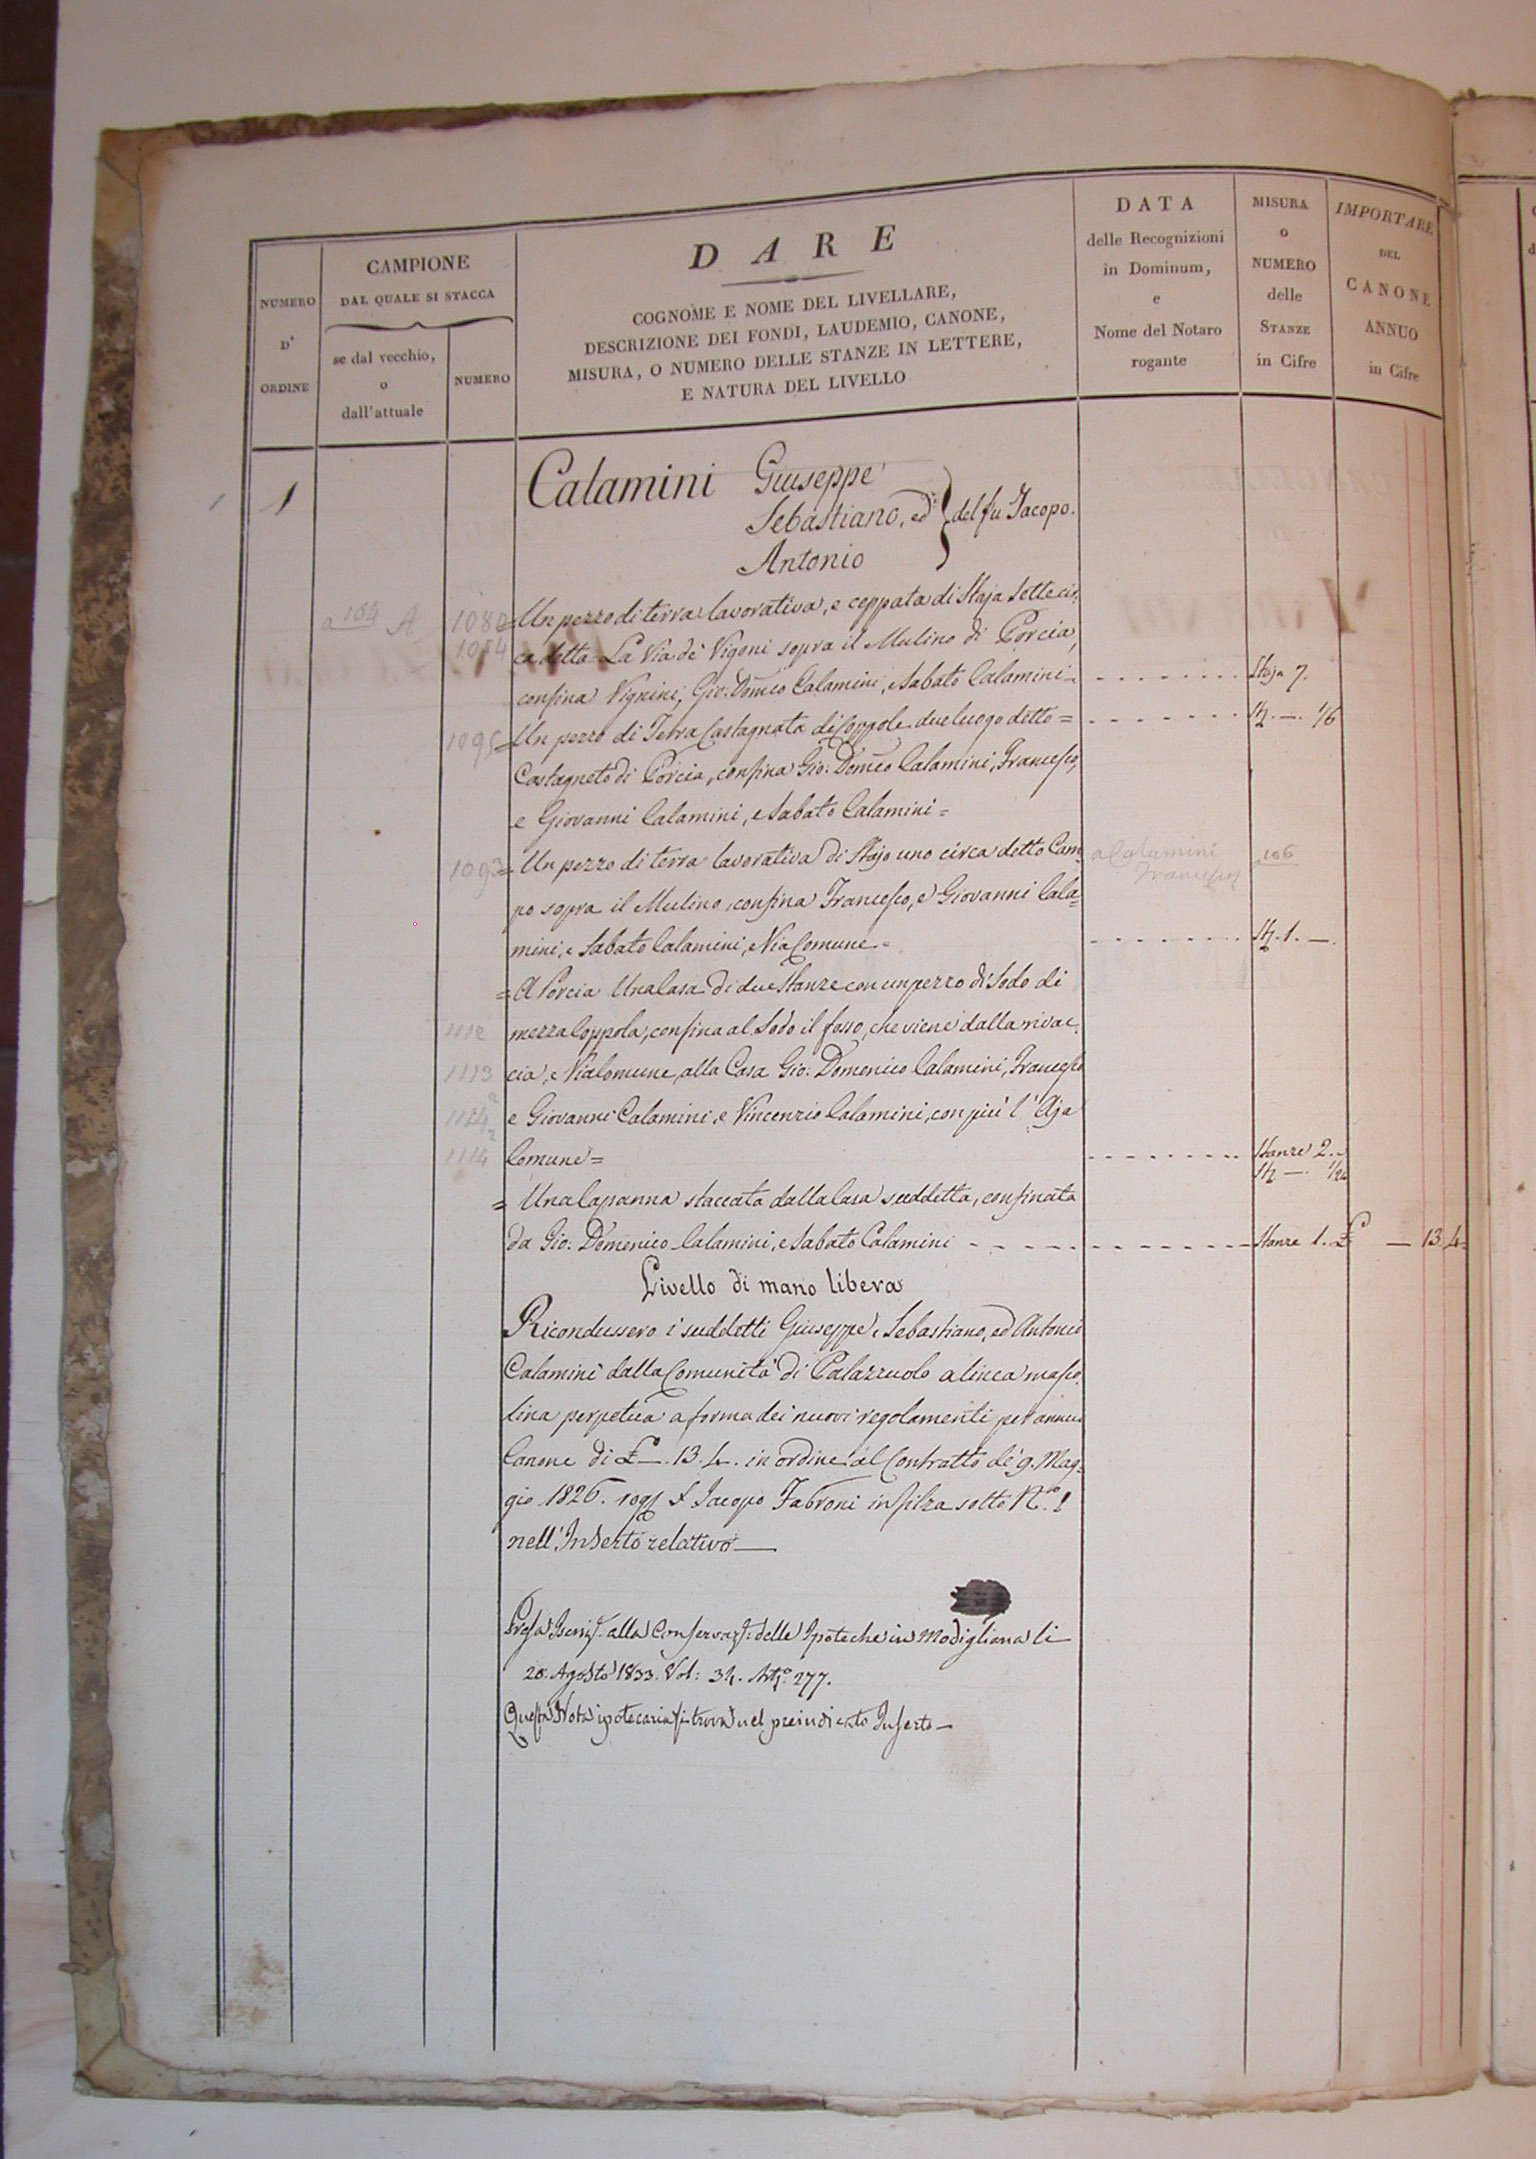 NUMERO
D'
ORDINE
CAMPIONE
DAL QUALE SI STACCA
se dal vecchio,
o
dall'attuale
NUMERO
DARE
COGNOME E NOME DEL LIVELLARE,
DESCRIZIONE DEI FONDI, LAUDEMIO, CANONE,
MISURA, O NUMERO DELLE STANZE IN LETTERE,
E NATURA DEL LIVELLO
DATA
delle Recognizioni
in Dominum,
e
Nome del Notaro
rogante
MISURA
o
NUMERO
delle
STANZE
in Cifre
IMPORTARE
DEL
CANONE
ANNUO
in Cifre
1
Calamini Giuseppe
Sebastiano, ed } del fu Jacopo.
Antonio
a 104 A 1080 = Un pezzo di terra lavorativa, e ceppata di Staja sette cir-
1084 ca detta La Via de' Vigoni sopra il Mulino di Porcia,
confina Vignini, Gio: Dom.co Calamini, e Sabato Calamini - Staja 7.
1095 = Un pezzo di Terra Castagnata di Coppole due luogo detto = - 1/6
Castagneto di Porcia, confina Gio: Dom.co Calamini, Francesco,
e Giovanni Calamini, e Sabato Calamini =
1093 = Un pezzo di terra lavorativa di Stajo uno circa detto Cam- a Calamini Francesco 106
po sopra il Mulino, confina Francesco, e Giovanni Cala=
mini, e Sabato Calamini, e Via Comune = 1. -.
= A Porcia Una Casa di due Stanze con un pezzo di Sodo di
1112 mezza Coppola, confina al Sodo il fosso, che viene dalla rivac-
1113 cia, e Via Comune, alla Casa Gio: Domenico Calamini, Francesco
e Giovanni Calamini, e Vincenzio Calamini, con più l'Aja
1114 Comune = Stanze 2.
= Una Capanna staccata dalla Casa suddetta, confinata
da Gio: Domenico Calamini, e Sabato Calamini - Stanze 1. £ - 13. 4
Livello di mano libera
Ricondussero i suddetti Giuseppe, Sebastiano, ed Antonio
Calamini dalla Comunità di Palazzuolo a linea masco-
lina perpetua a forma dei nuovi regolamenti per annuo
Canone di £ -. 13. 4. in ordine al Contratto de' 9. Mag=
gio 1826. rog.to S. Jacopo Fabroni in filza sotto N.o 1
nell'Inserto relativo
Presa Iscriz. alla Conservaz. delle Ipoteche in Modigliana li
20. Agosto 1833. Vol: 34. Art.o 277.
Questa Nota ipotecaria si trova nel preindicato Inserto -